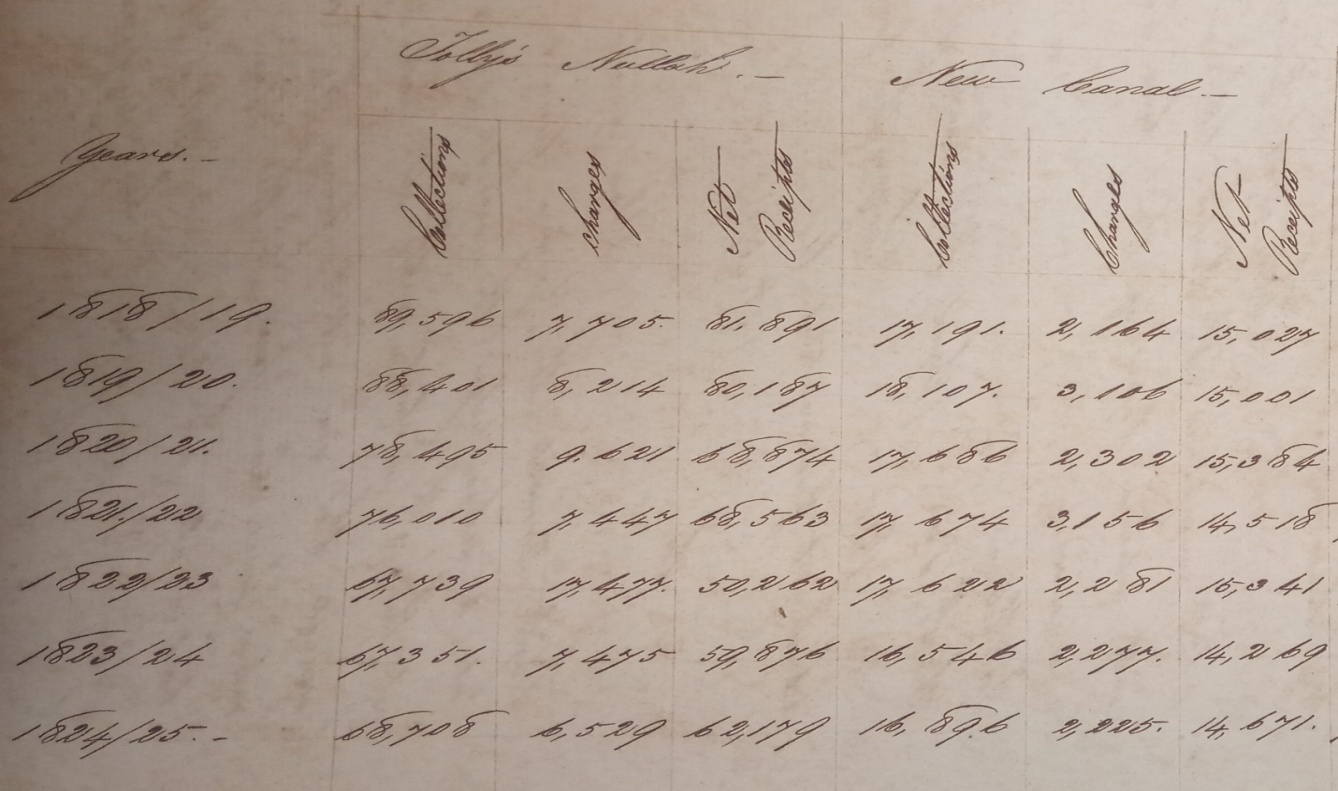 Tolly's Nullah. — New Canal. —
Years. — Collections Charges Net Receipts Collections Charges Net Receipts
1818/19. 89,596 7,705. 81.891 17,191. 2,164 15,027
1819/20. 88,401 8,214 80,187 18,107. 3,106 15,001
1820/21. 78,495 9.621 68,874 17,686 2,302 15,384
1821./22 76,010 7,447 68,563 17,674 3,156 14,518
1822/23 67,739 17,477. 50,262 17,622 2,281 15,341
1823/24 67,351. 7,475 59,876 16,546 2,277. 14,269
1824/25. - 68,708 6,529 62,179 16,896 2,225. 14,671.